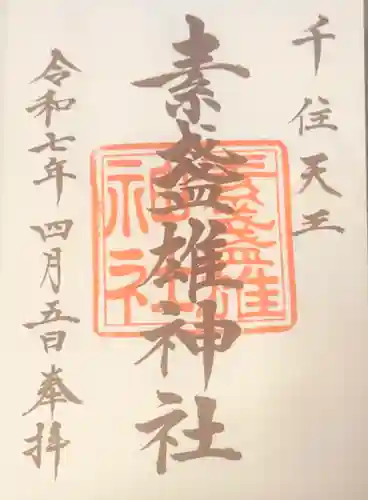 千住天王
素盞雄神社
令和七年 四月五日 奉拝
素盞雄
神社